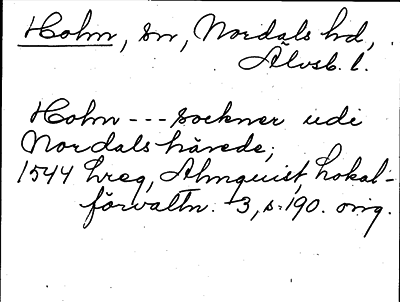 Holm, sn, Nordals hd,
Älvsb. l.
Holm --- Sockner udi
Nordals härede;
1544 hreg, Almquist, Lokal-
förvaltn. 3, s. 190. orig.